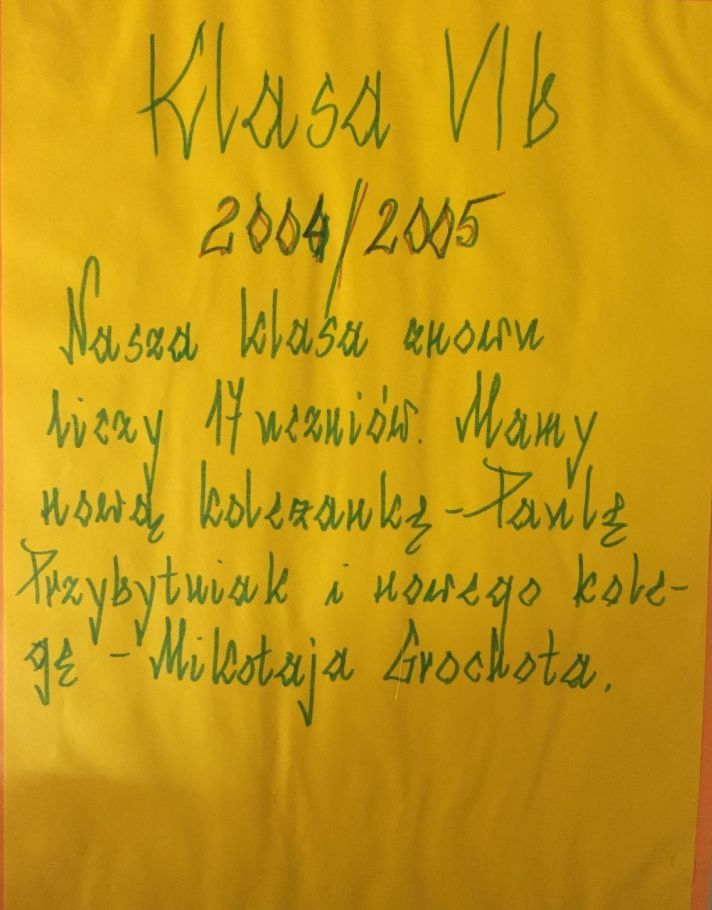 Klasa VIb
2004/2005
Nasza klasa znowu
liczy 17 uczniów. Mamy
nową koleżankę - Paulę
Przybytniak i nowego kole-
gę - Mikołaja Grochota.